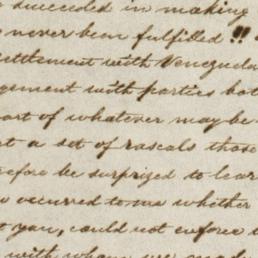 succeeded in making
never been fulfilled !!
settlement with Venezuela
gement with parties both
part of whatever may be
t a set of rascals those
efore be surprized to lear
occurred to me whether
t you, could not enforce
with whom